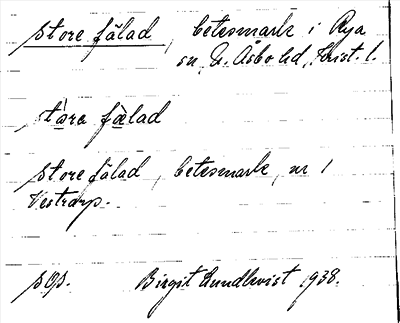 store fälad, betesmark i Rya
sn, N. Åsbo hd, Krist. l.
stọ̀rə fæ̀lad
store fälad, betesmark, nr 1
Vestrarp.
sOs. Birgit Lundkvist 1938.